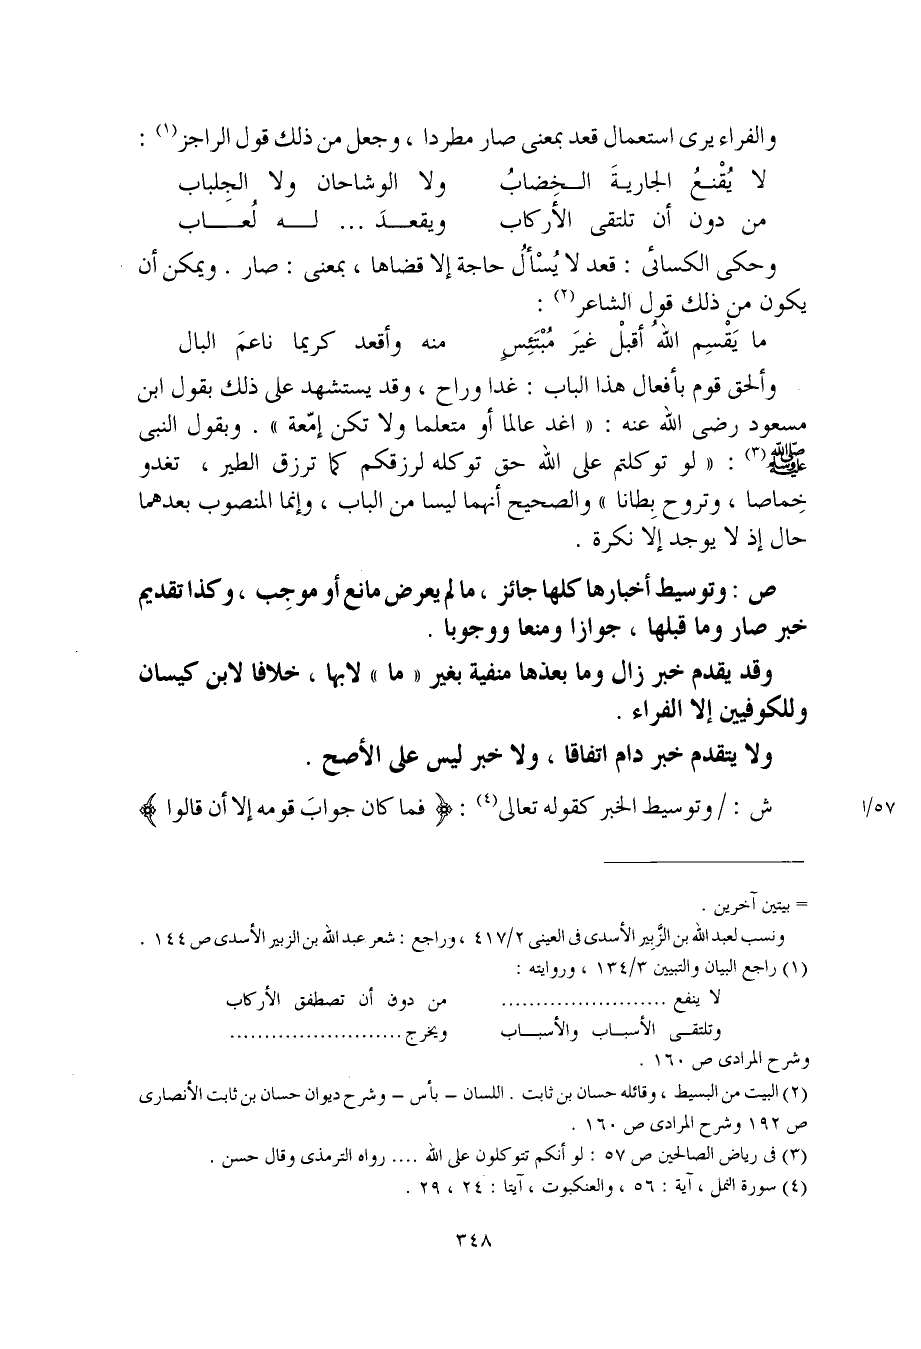 والفراء يرى استعمال قعد بمعنى صار مطردا ، وجعل من ذلك قول الراجز(١) :
لا يُقْنعُ الجاريةَ الـخِضابُ ولا الوشاحان ولا الجِلباب
من دون أن تلتقى الأركاب ويقعـدَ ... لـه لُعـاب
وحكى الكسائىُّ : قعد لا يُسْألُ حاجة إلا قضاها ، بمعنى : صار . ويمكن أن
يكون من ذلك قول الشاعر(٢) :
ما يَقْسِم اللهُ أقبلْ غيرَ مُبْتَئِسٍ منه وأقعد كريما ناعمَ البال
وألحق قوم بأفعال هذا الباب : غدا وراح ، وقد يستشهد على ذلك بقول ابن
مسعود رضى الله عنه : « اغد عالما أو متعلما ولا تكن إمّعة » . وبقول النبى
ﷺ(٣) : « لو توكلتم على الله حق توكله لرزقكم كما ترزق الطير ، تغدو
خِماصا ، وتروح بِطانا » والصحيح أنهما ليسا من الباب ، وإنما المنصوب بعدهما
حال إذ لا يوجد إلا نكرة .
ص : وتوسيط أخبارها كلها جائز ، ما لم يعرض مانع أو موجِب ، وكذا تقديم
خبر صار وما قبلها ، جوازا ومنعا ووجوبا .
وقد يقدم خبر زال وما بعدها منفية بغير « ما » لابها ، خلافا لابن كيسان
وللكوفيين إلا الفراء .
ولا يتقدم خبر دام اتفاقا ، ولا خبر ليس على الأصح .
ش : / وتوسيط الخبر كقوله تعالى(٤) : ﴿ فما كان جوابَ قومه إلا أن قالوا ﴾ ١/٥٧
= بيتين آخرين .
ونسب لعبد الله بن الزَّبير الأسدى فى العينى ٤١٧/٢ ، وراجع : شعر عبد الله بن الزبير الأسدى ص ١٤٤ .
(١) راجع البيان والتبيين ١٣٤/٣ ، وروايته :
لا ينفع ........................ من دون أن تصطفق الأركاب
وتلتقـى الأسبـاب والأسبـاب ويخرج .........................
وشرح المرادى ص ١٦٠ .
(٢) البيت من البسيط ، وقائله حسان بن ثابت . اللسان – بأس – وشرح ديوان حسان بن ثابت الأنصارى
ص ١٩٢ وشرح المرادى ص ١٦٠ .
(٣) فى رياض الصالحين ص ٥٧ : لو أنكم تتوكلون على الله .... رواه الترمذى وقال حسن .
(٤) سورة النمل ، آية : ٥٦ ، والعنكبوت ، آيتا : ٢٤ ، ٢٩ .
٣٤٨